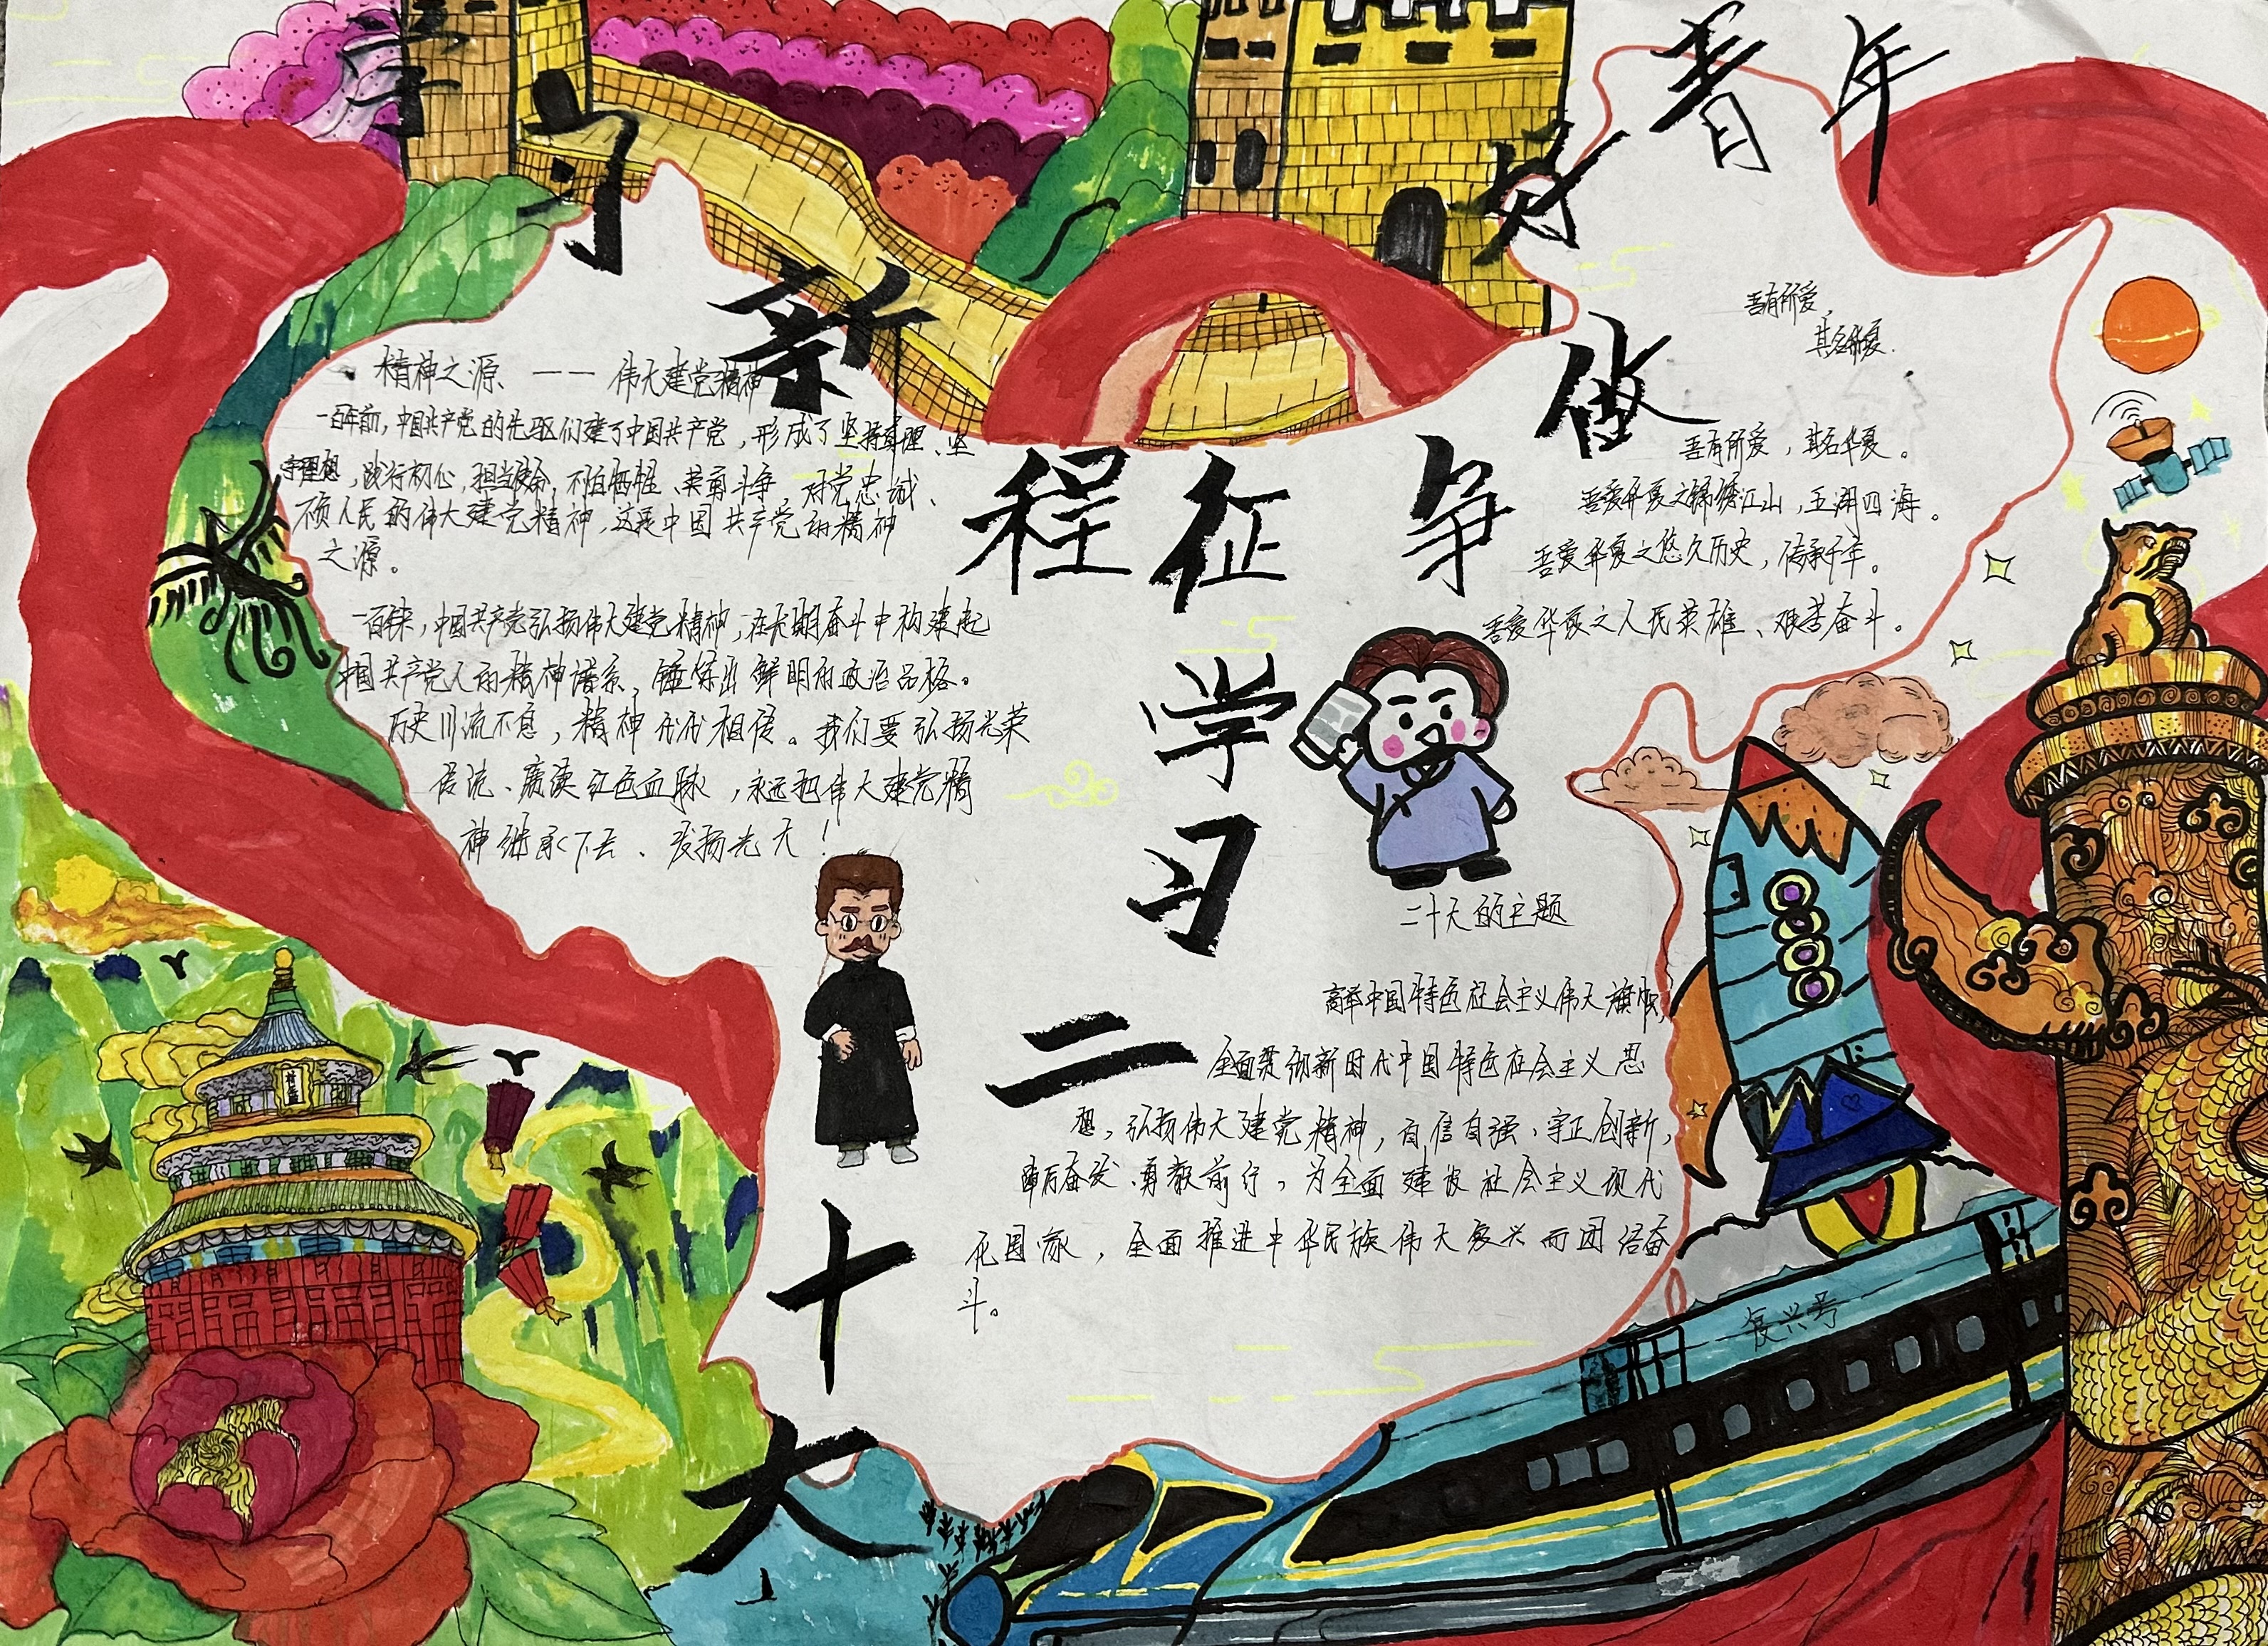 学习二十大
学习新征程
争做好青年
精神之源——伟大建党精神
一百年前，中国共产党的先驱们建了中国共产党，形成了坚持真理、坚
守理想，践行初心，担当使命，不怕牺牲、英勇斗争，对党忠诚、
不负人民的伟大建党精神，这是中国共产党的精神
之源。
一百年来，中国共产党弘扬伟大建党精神，在长期奋斗中构建起
中国共产党人的精神谱系，锤炼出鲜明的政治品格。
历史川流不息，精神代代相传。我们要弘扬光荣
传统、赓续红色血脉，永远把伟大建党精
神继承下去、发扬光大！
吾有所爱，
其名华夏.
吾有所爱，其名华夏。
吾爱华夏之锦绣江山，五湖四海。
吾爱华夏之悠久历史，传承千年。
吾爱华夏之人民英雄、艰苦奋斗。
二十大的主题
高举中国特色社会主义伟大旗帜，
全面贯彻新时代中国特色社会主义思
想，弘扬伟大建党精神，自信自强、守正创新，
踔厉奋发、勇毅前行，为全面建设社会主义现代
化国家，全面推进中华民族伟大复兴而团结奋
斗。
复兴号